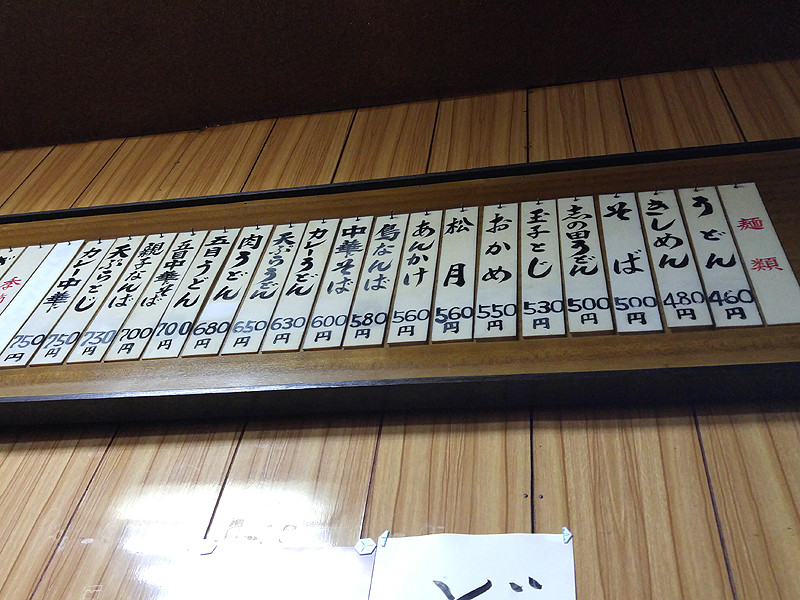 麺類
うどん 460円
きしめん 480円
そば 500円
志の田うどん 500円
玉子とじ 530円
おかめ 550円
松月 560円
あんかけ 560円
鳥なんば 580円
中華そば 600円
カレーうどん 630円
天ぷらうどん 650円
肉うどん 680円
五目うどん 700円
五目中華そば 700円
親子なんば 730円
天ぷらなんば 750円
カレー中華 750円
ど